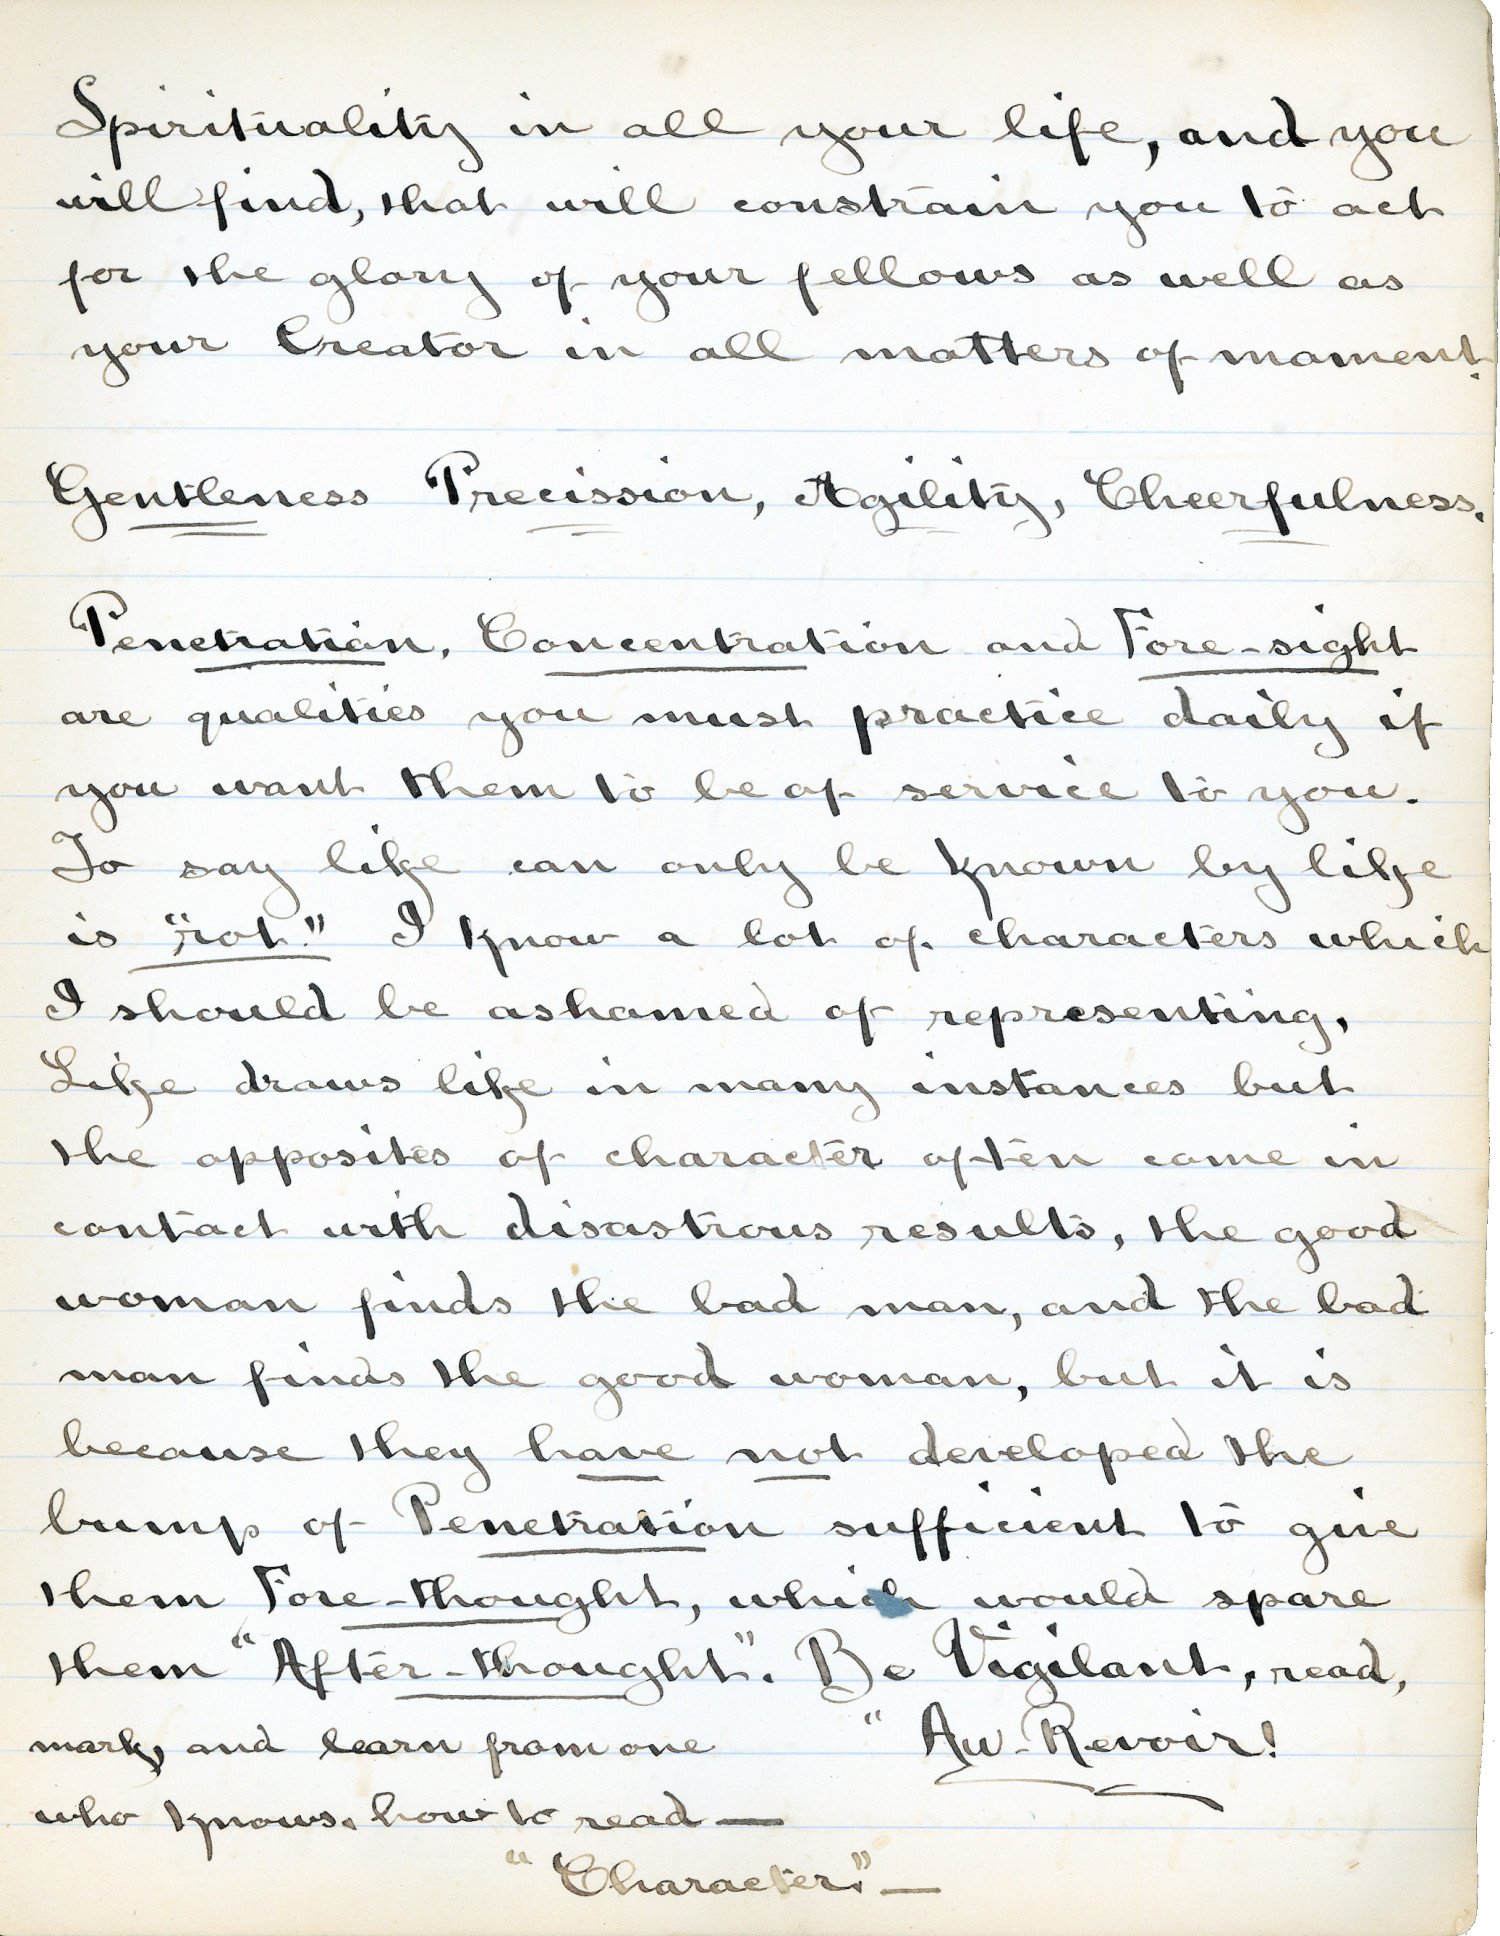 Spirituality in all your life, and you
will find, that will constrain you to act
for the glory of your fellows as well as
your Creator in all matters of moment.
Gentleness Precission, Agility, Cheerfulness.
Penetration, Concentration and Fore-sight
are qualities you must practice daily if
you want them to be of service to you.
To say like can only be known by like
is "rot." I know a lot of characters which
I should be ashamed of representing,
Like draws like in many instances but
the opposites of character often come in
contact with disastrous results, the good
woman finds the bad man, and the bad
man finds the good woman, but it is
because they have not developed the
bump of Penetration sufficient to give
them Fore-thought, which would spare
them "After-thought". Be Vigilant, read,
mark, and learn from one " Au-Revoir!
who knows, how to read —
"Character." —